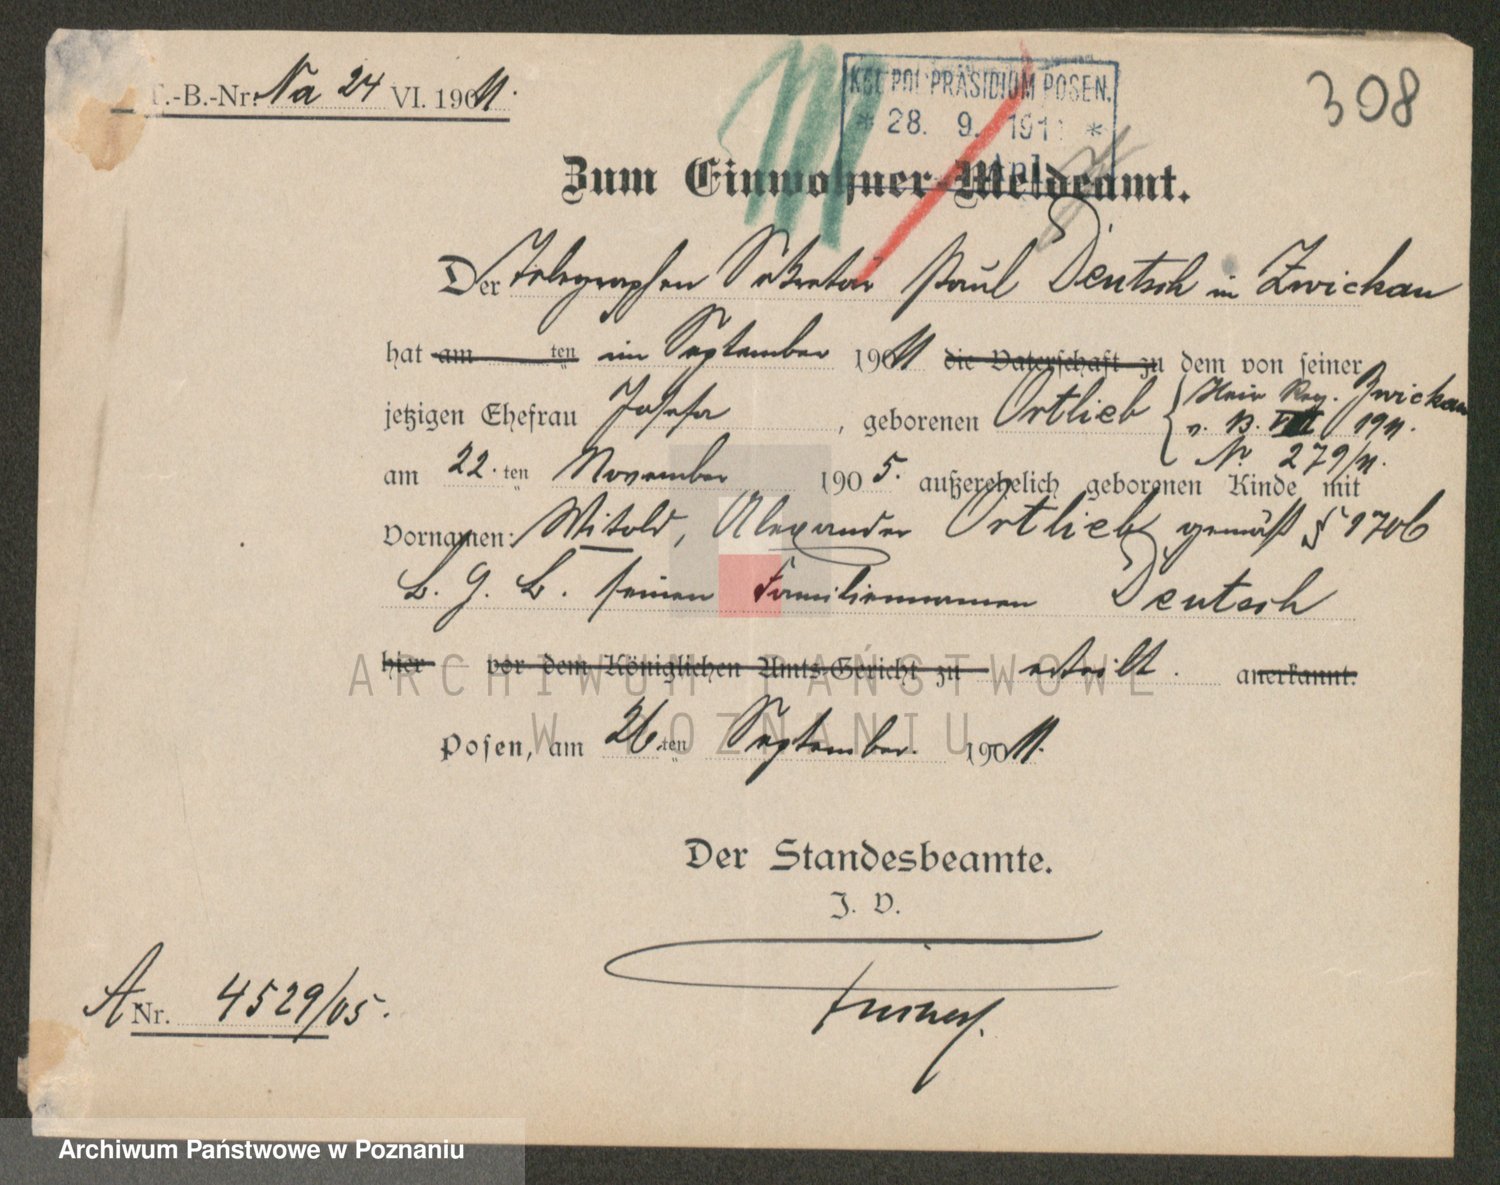 T.-B.-Nr. Na 24 VI. 1911.
KGL. POL. PRÄSIDIUM POSEN.
* 28. 9. 1911 *
308
Zum Einwohner-Meldeamt.
Der Telegraphen Sekretär Paul Deutsch in Zwickau
hat am ten im September 1911 die Vaterschaft zu dem von seiner
jetzigen Ehefrau Josefa, geborenen Ortlieb
Heir. Reg. Zwickau
v. 13. VII 1911.
Nr. 279/11.
am 22.ten November 1905. außerehelich geborenen Kinde mit
Vornamen: Witold, Alexander Ortlieb gemäß § 1706
B. G. B. seinen Familiennamen Deutsch
hier vor dem Königlichen Amts-Gericht zu erteilt. anerkannt.
Posen, am 26.ten September. 1911.
Der Standesbeamte.
J. V.
A Nr. 4529/05.
ARCHIWUM PAŃSTWOWE
W POZNANIU
Archiwum Państwowe w Poznaniu